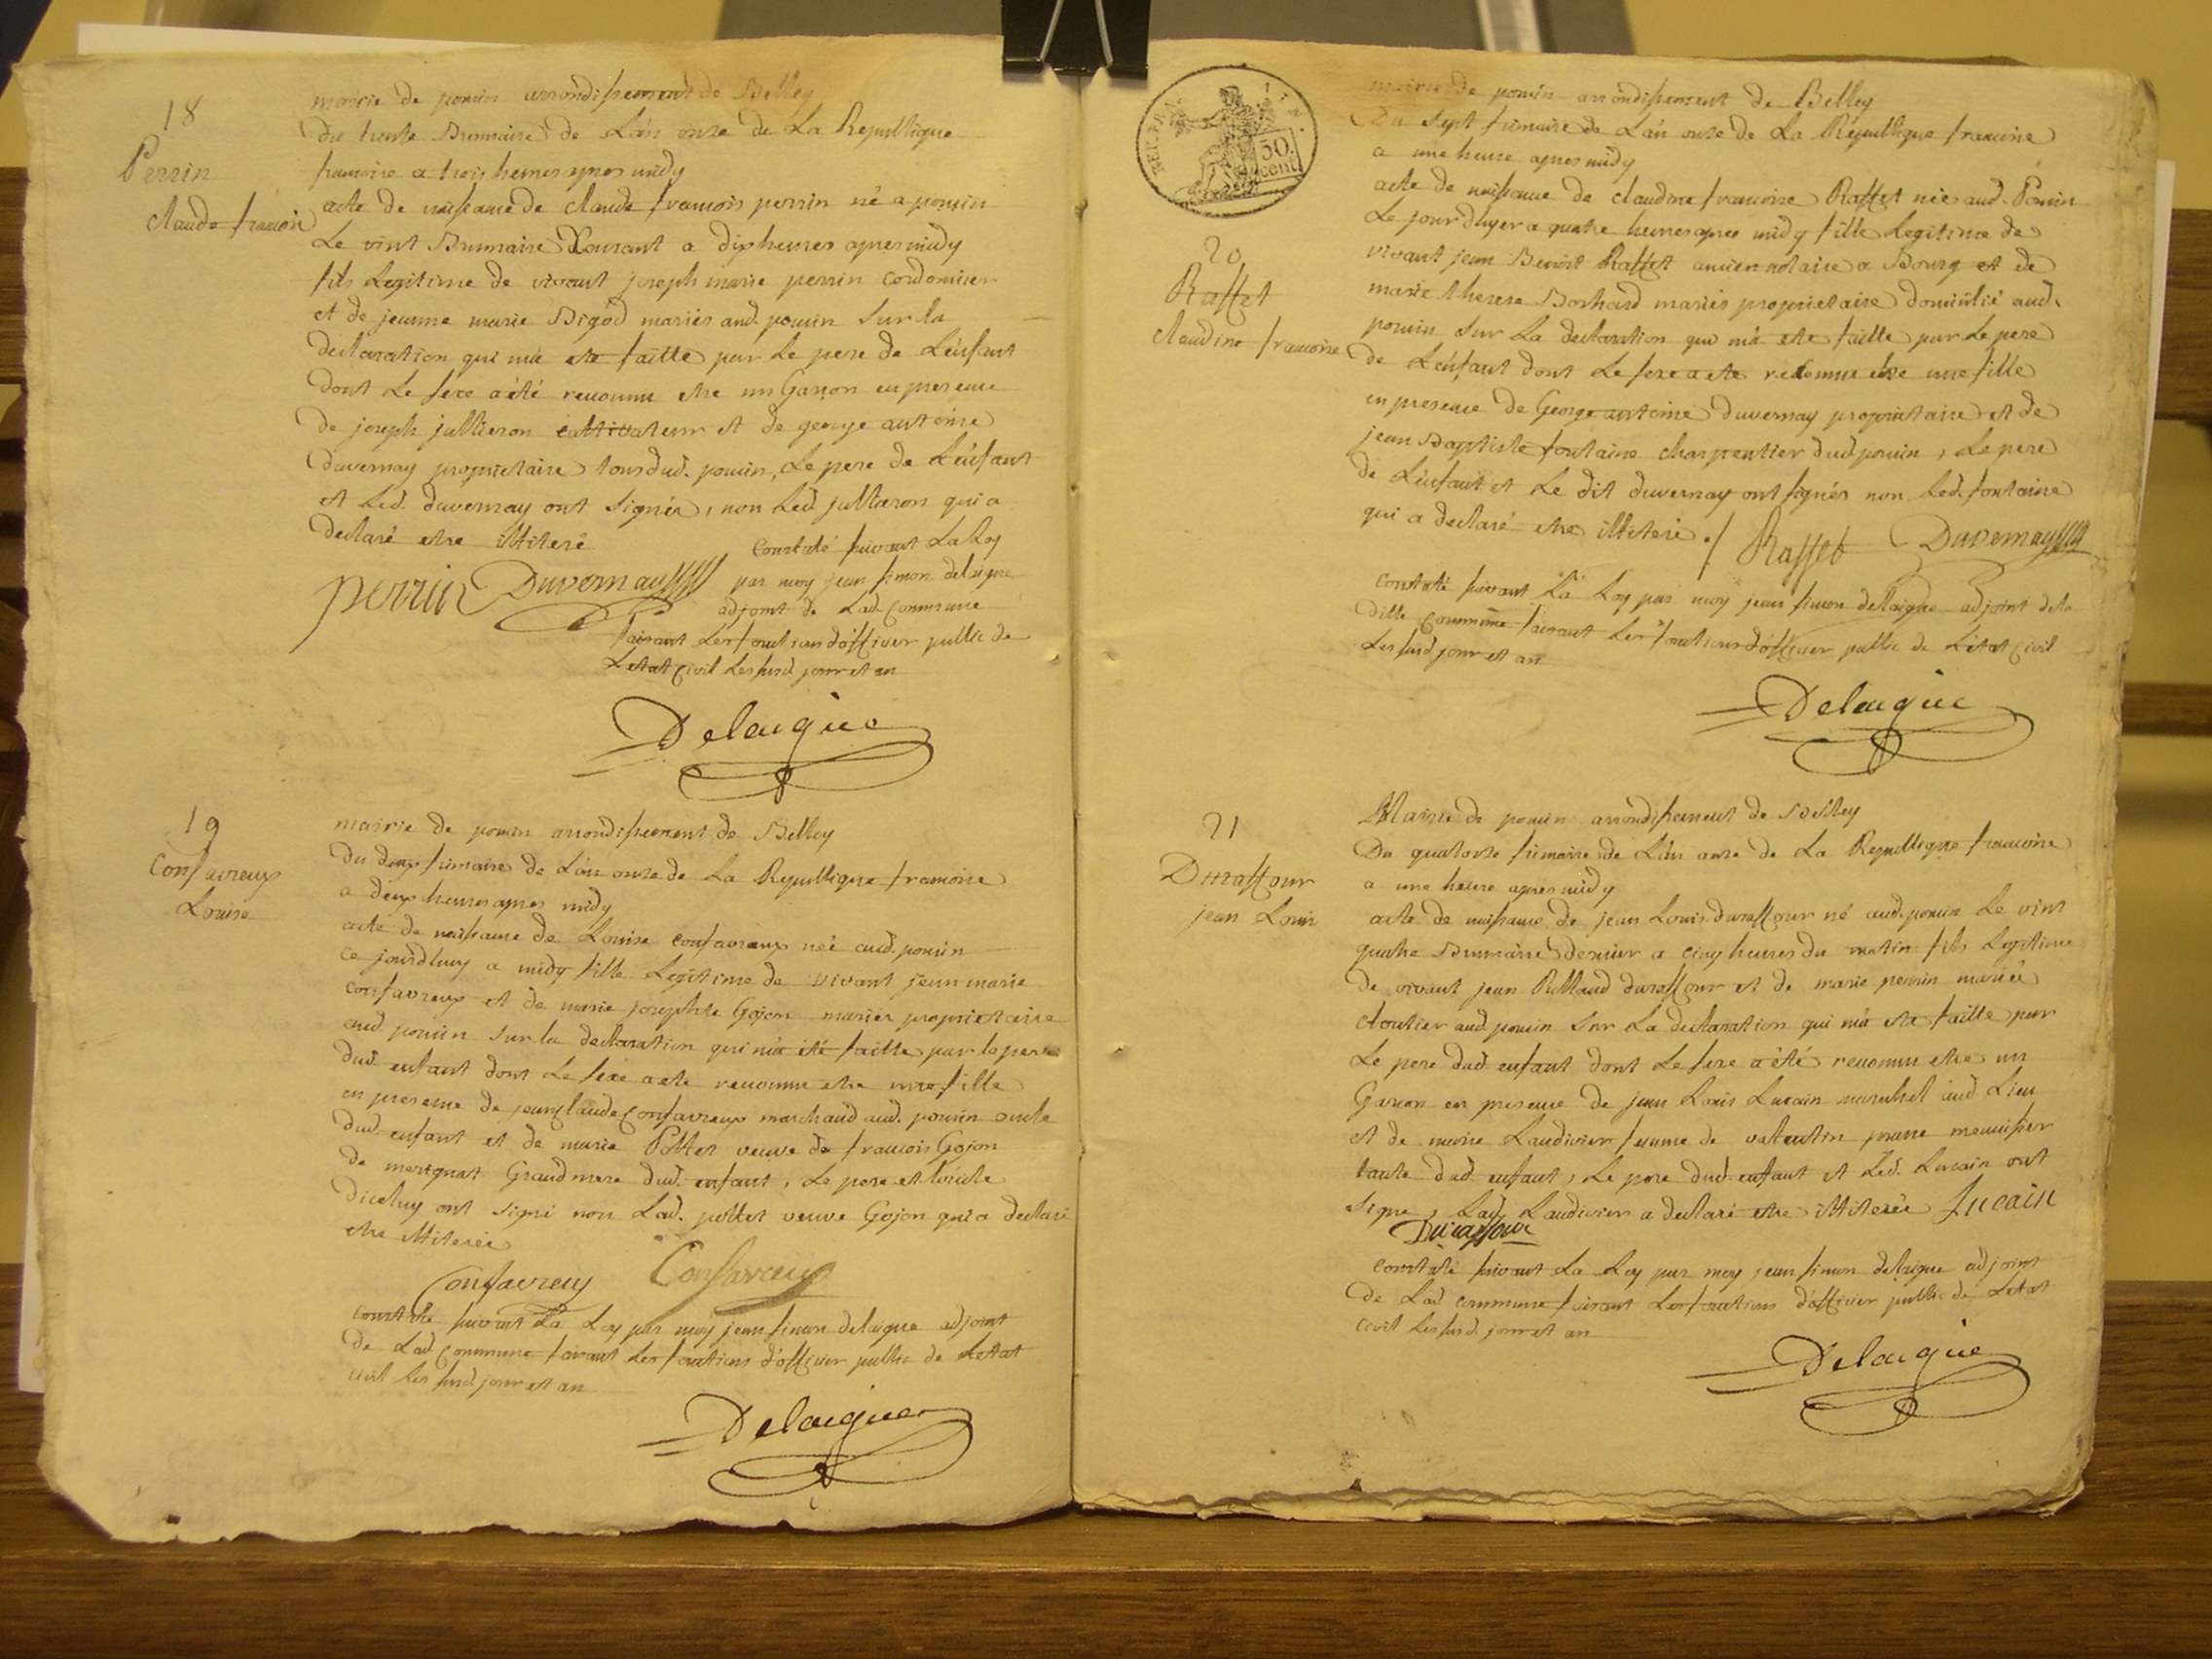 18
Perrin
claude francois
mairie de poncin arrondissement de Belley
Du trente Brumaire de L'an onze de La Republique
francoise a trois heures apres midy
acte de naissance de claude francois perrin né a poncin
Le vint Brumaire Courant a dix heures apres midy
fils Legitime de vivant joseph marie perrin cordonnier
et de jeanne marie Bigod mariés aud. poncin Sur la
declaration qui m'a ete faitte par Le pere de L'enfant
dont Le sexe a été reconnu etre un Garçon en presence
de joseph jullieron cultivateur et de george antoine
duvernay proprietaire tous dud. poncin, Le pere de L'enfant
et Led. duvernay ont signés, non Led jullieron qui a
declaré etre illiteré
Constaté suivant La Loy
perrin Duvernay par moy jean simon delaigue
adjoint de Lad. Commune
faisant Les fonctions d'officier public de
L'etat Civil Les susd. jour et an
Delaigue
19
Confavreux
Louise
mairie de poncin arrondissement de Belley
Du deux frimaire de L'an onze de La Republique francoise
a deux heures apres midy
acte de naissance de Louise confavreux née aud. poncin
ce jourd'huy a midy fille Legitime de vivant jean marie
confavreux et de marie josephte Gojon mariés proprietaire
aud. poncin sur la declaration qui m'a été faitte par le pere
dud. enfant dont Le sexe a ete reconnu etre une fille
en presence de jean claude Confavreux marchand aud. poncin oncle
dud. enfant et de marie Pottet veuve de francois Gojon
de merignat Grand mere dud. enfant, Le pere et L'oncle
d'iceluy ont signé non Lad. pottet veuve Gojon qui a declaré
etre illiterée
Confavreux Confavreux
constaté suivant La Loy par moy jean simon delaigue adjoint
de Lad Commune faisant Les fonctions d'officier public de L'etat
civil Les susd. jour et an
Delaigue
REP. FRA.
50.
cent
20
Raffet
claudine francoise
mairie de poncin arrondissement de Belley
Du sept frimaire de L'an onze de La Republique francoise
a une heure apres midy
acte de naissance de claudine francoise Raffet née aud. Poncin
Le jour d'hyer a quatre heures apres midy fille Legitime de
vivant jean Benoit Raffet ancien notaire a Bourg et de
marie therese Bochard mariés proprietaire domicilié aud.
poncin sur La declaration qui m'a ete faitte par Le pere
de L'enfant dont Le sexe a ete reconnu etre une fille
en presence de George antoine duvernay proprietaire et de
jean Baptiste fontaine charpentier dud. poncin, Le pere
de L'enfant et Le dit duvernay ont signés non Led. fontaine
qui a declaré etre illiteré ./ Raffet Duvernay
constaté suivant La Loy par moy jean simon delaigue adjoint de la
ditte Commune faisant Les fonctions d'officier public de L'état Civil
Les susd jour et an
Delaigue
21
Duraffour
jean Louis
Mairie de poncin arrondissement de Belley
Du quatorze frimaire de L'an onze de La Republique francoise
a une heure apres midy
acte de naissance de jean Louis duraffour né aud. poncin Le vint
quatre Brumaire dernier a cinq heures du matin fils Legitime
de vivant jean Rolland duraffour et de marie perrin mariés
cloutier aud. poncin sur La declaration qui m'a ete faitte par
Le pere dud. enfant dont Le sexe a été reconnu etre un
Garcon en presence de jean Louis Lucain marechal aud. Lieu
et de marie Laudivier femme de valentin menuisier
tante dud. enfant, Le pere dud. enfant et Led. Lucain ont
signé, Lad. Laudivier a declaré etre illiterée Lucain
Duraffour
constaté suivant La Loy par moy jean simon delaigue adjoint
de Lad commune faisant Les fonctions d'officier public de L'etat
civil Les susd. jour et an
Delaigue